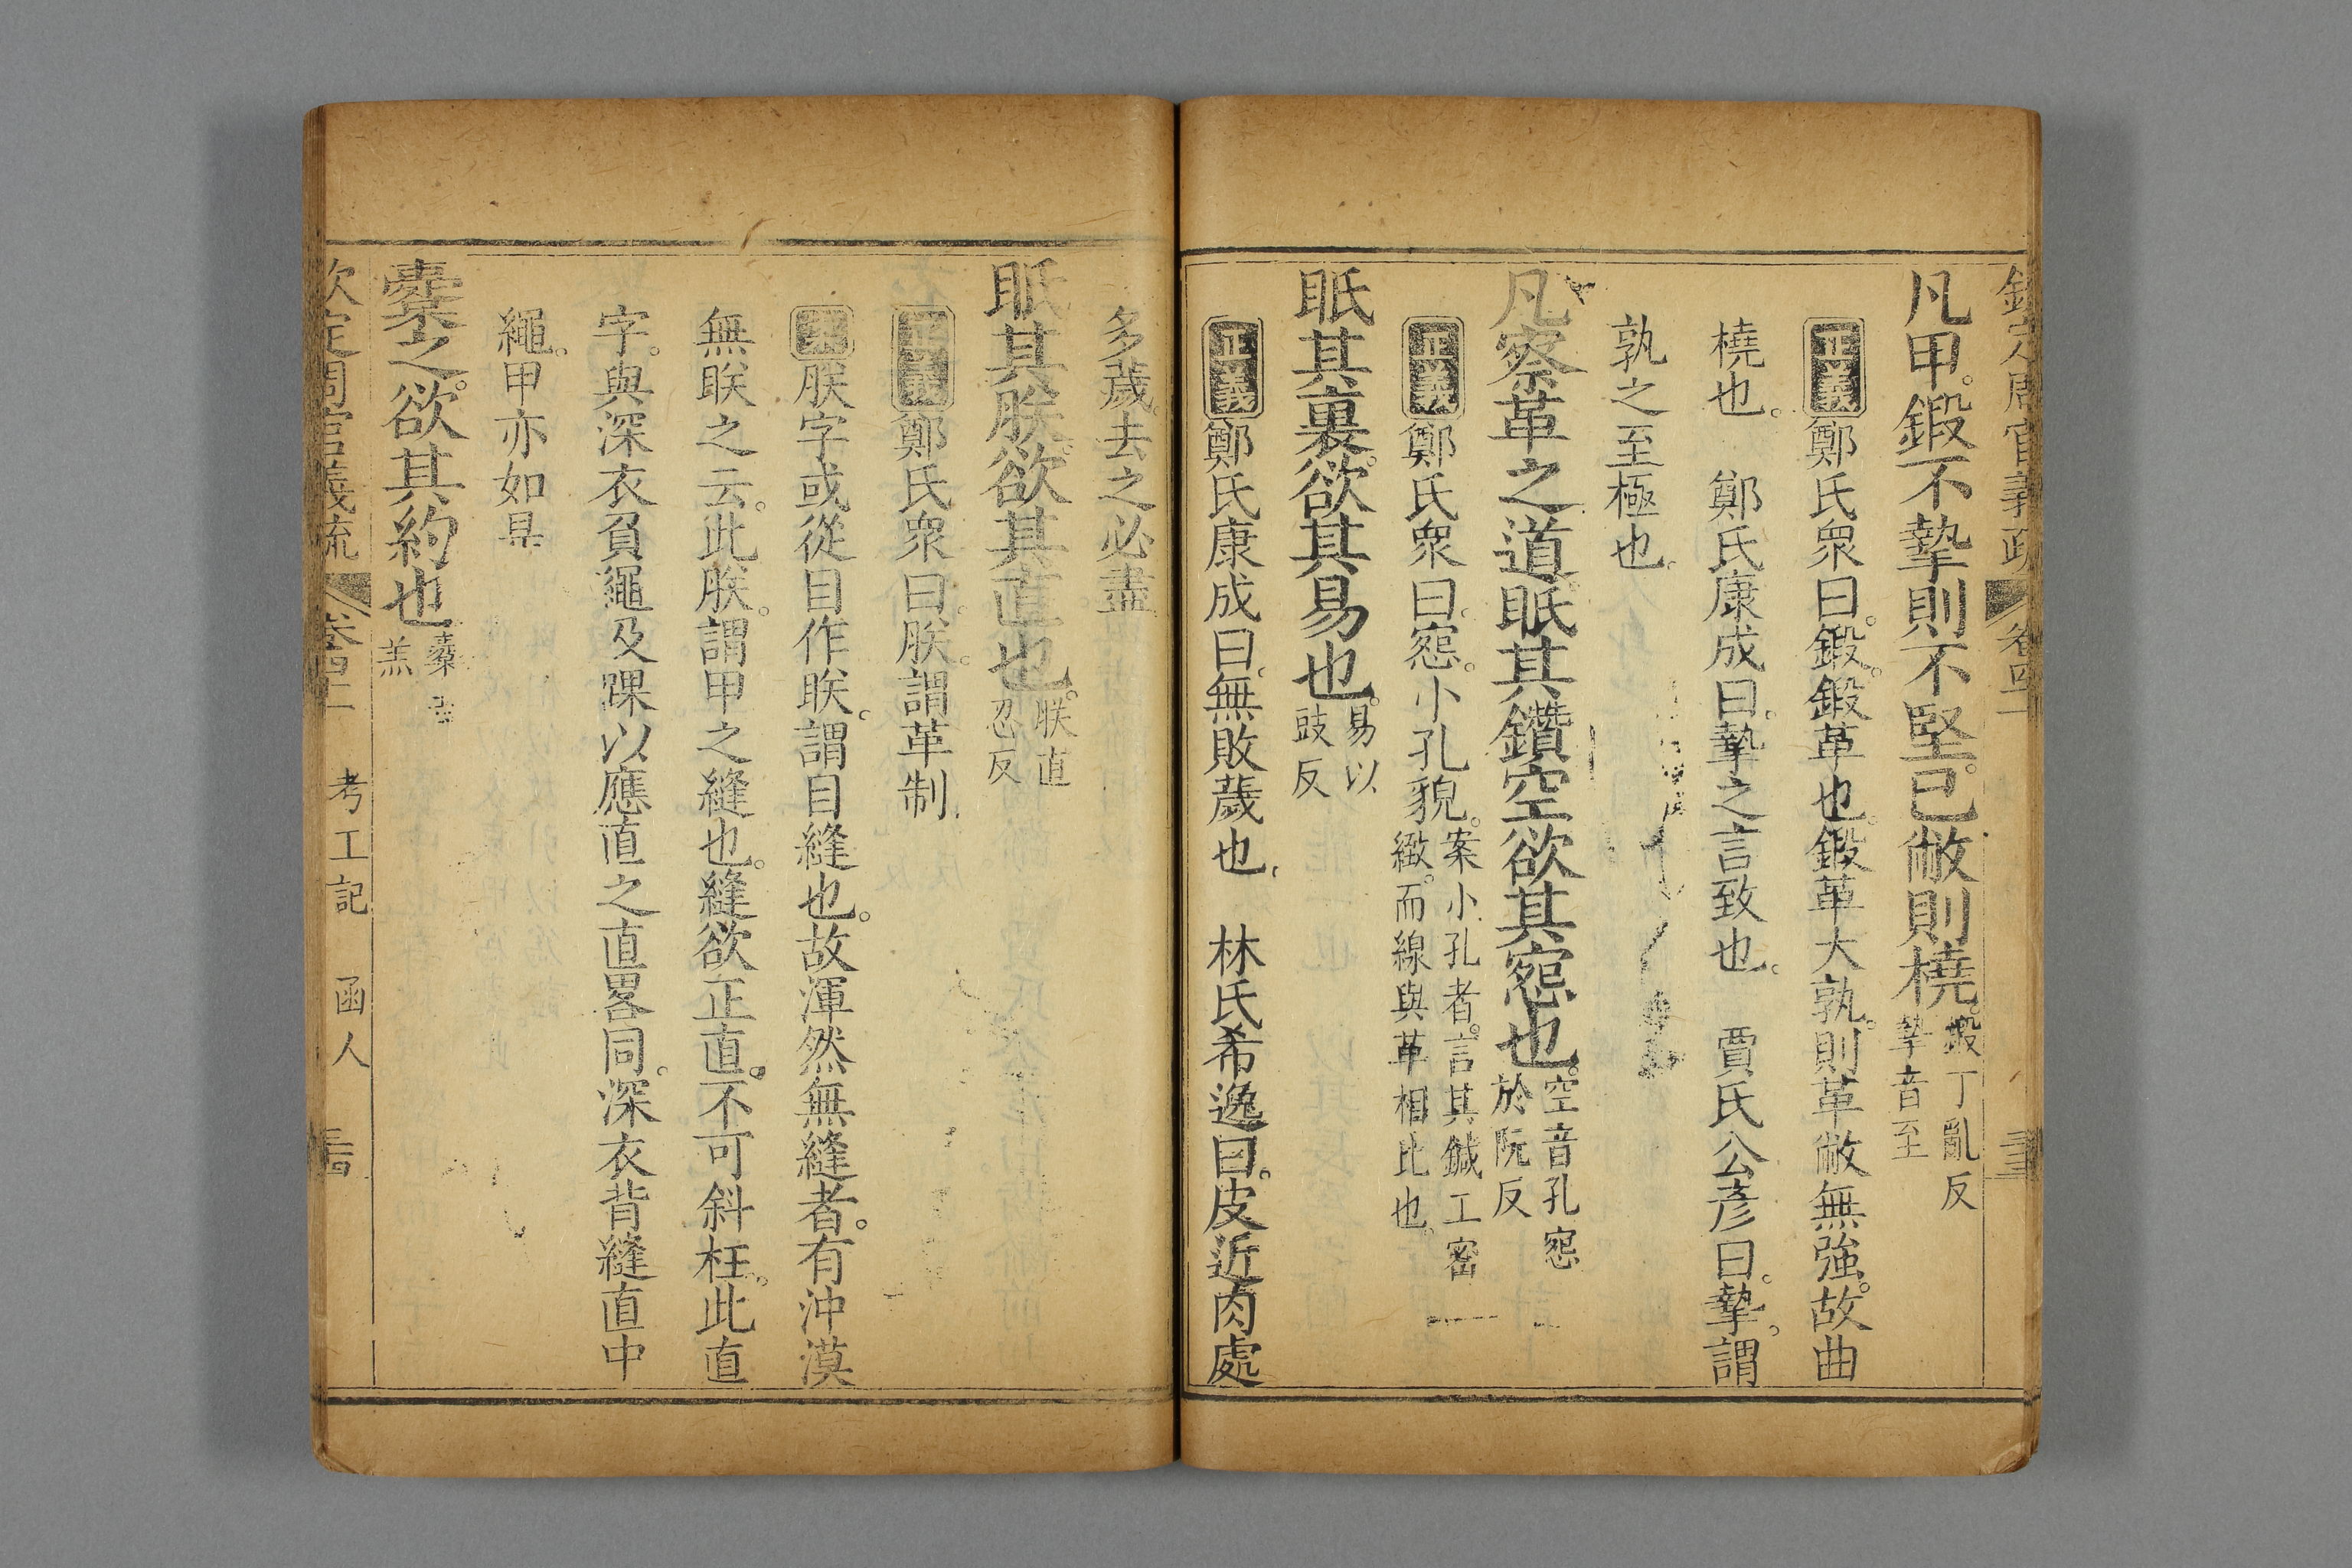 欽定周官義疏 卷四十
凡甲。鍛不摯則不堅。已敝則橈。鍛丁亂反摯音至
正義鄭氏衆曰。鍛。鍛革也。鍛革大孰。則革敝無強。故曲
橈也。 鄭氏康成曰。摯之言致也。 賈氏公彦曰。摯。謂
孰之至極也。
凡察革之道。眡其鑽空欲其窓也。空音孔窓於阮反
正義鄭氏衆曰。窓。小孔貌。案小孔者。言其鍼工密緻。而線與革相比也。
眡其裏。欲其易也。易以豉反
正義鄭氏康成曰。無敗薉也。 林氏希逸曰。皮近肉處
多薉。去之必盡。
眡其朕。欲其直也。朕直忍反
正義鄭氏衆曰。朕。謂革制。
案朕字或從目作眹。謂目縫也。故渾然無縫者。有沖漠
無眹之云。此朕。謂甲之縫也。縫欲正直。不可斜枉。此直
字。與深衣負繩及踝以應直之直畧同。深衣背縫直中
繩。甲亦如是
櫜之。欲其約也櫜音羔
欽定周官義疏 卷四十二 考工記 函人 三四